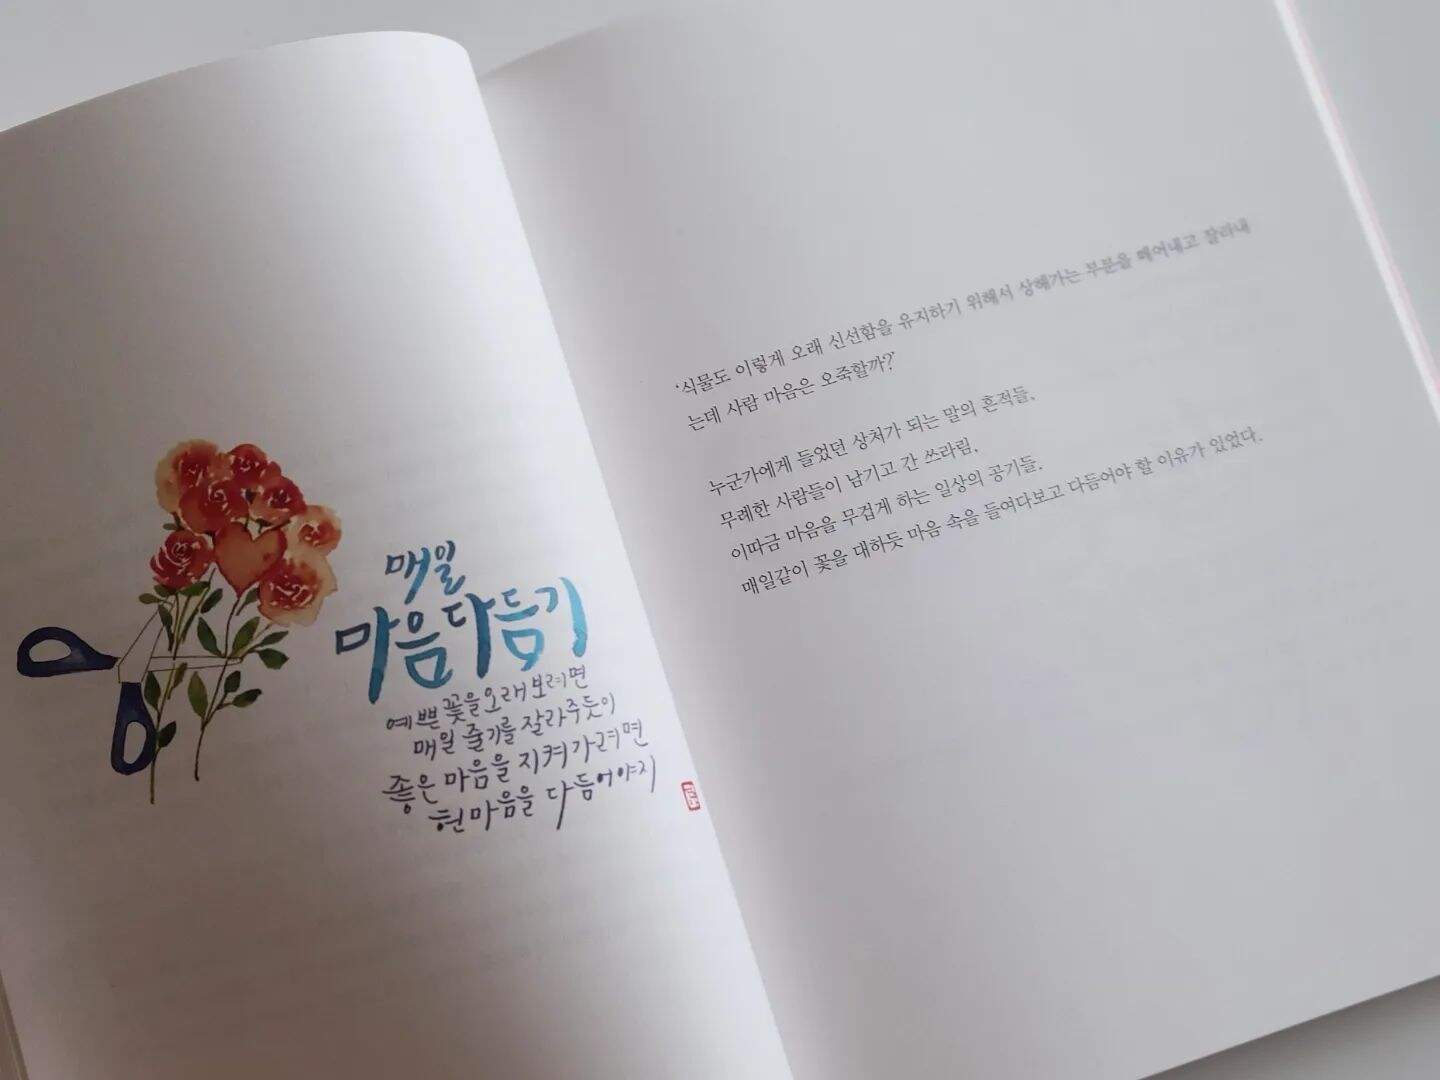 매일
마음다듬기
예쁜 꽃을 오래 보려면
매일 줄기를 잘라주듯이
좋은 마음을 지켜가려면
헌 마음을 다듬어야지
‘식물도 이렇게 오래 신선함을 유지하기 위해서 상해가는 부분을 떼어내고 잘라내
는데 사람 마음은 오죽할까?’
누군가에게 들었던 상처가 되는 말의 흔적들,
무례한 사람들이 남기고 간 쓰라림,
이따금 마음을 무겁게 하는 일상의 공기들.
매일같이 꽃을 대하듯 마음 속을 들여다보고 다듬어야 할 이유가 있었다.